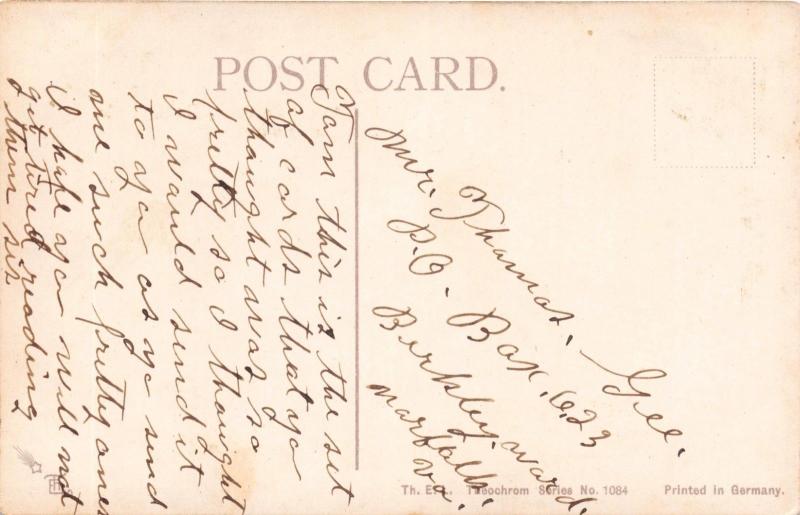 POST CARD.
Tom this is the set
of cards that yo
thought was so
pretty so I thought
I would send it
to yo as yo send
me such pretty ones
I hope yo will not
git tired reading
them six
Mr. Thomas. Gee.
P.O. Box. 623
Berkley. ward.
Norfolk.
va.
Th. E. L. Theochrom Series No. 1084
Printed in Germany.